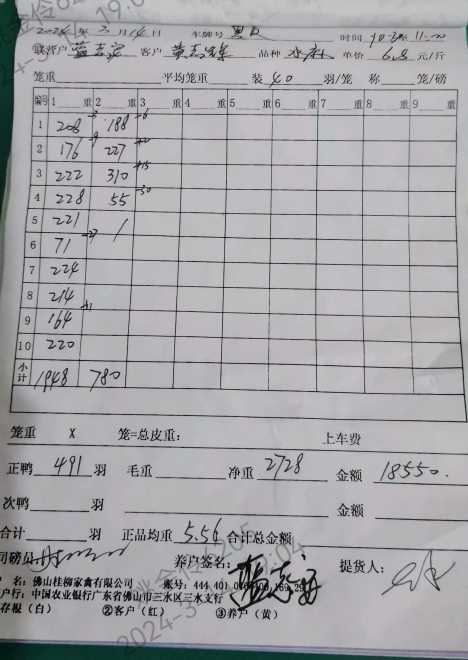 2024年 3月14日 车牌号 时间 11:00
养户 蓝志 客户 品种 水 单价 6.8 元/斤
笼重 平均笼重 装 40 羽/笼 称 笼/磅
编号 1 重 2 重 3 重 4 重 5 重 6 重 7 重 8 重 9 重
1 208 188
2 176 227
3 222 310
4 228 55
5 221
6 71
7 224
8 214
9 164
10 220
小计 1948 780
笼重 X 笼=总皮重: 上车费
正鸭 491 羽 毛重 净重 2728 金额 18550.
次鸭 羽 金额
合计 羽 正品均重 5.56 合计总金额
司磅员 养户签名: 蓝志 提货人:
名: 佛山桂柳家禽有限公司 账号: 444 401
户行: 中国农业银行广东省佛山市三水区三水支行
存根(白) ②客户(红) ③养户(黄)